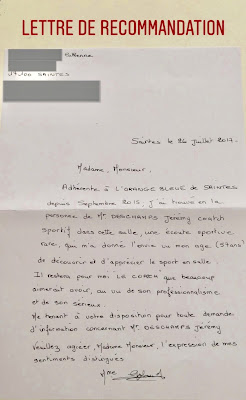 LETTRE DE RECOMMANDATION
17100 SAINTES
Saintes le 26 juillet 2017
Madame, Monsieur,
Adhérente à L'ORANGE BLEUE DE SAINTES
depuis Septembre 2015, j'ai trouvé en la
personne de Mr DESCHAMPS Jérémy coach
sportif dans cette salle, une écoute sportive
rare, qui m'a donné l'envie vu mon age (57ans)
de découvrir et d'apprécier le sport en salle.
Il restera pour moi LE COACH que beaucoup
aimerait avoir, au vu de son professionnalisme
et de son sérieux.
Me tenant à votre disposition pour toute demande
d'information concernant Mr DESCHAMPS Jérémy
Veuillez agréer, Madame Monsieur, l'expression de mes
sentiments distingués
Mme